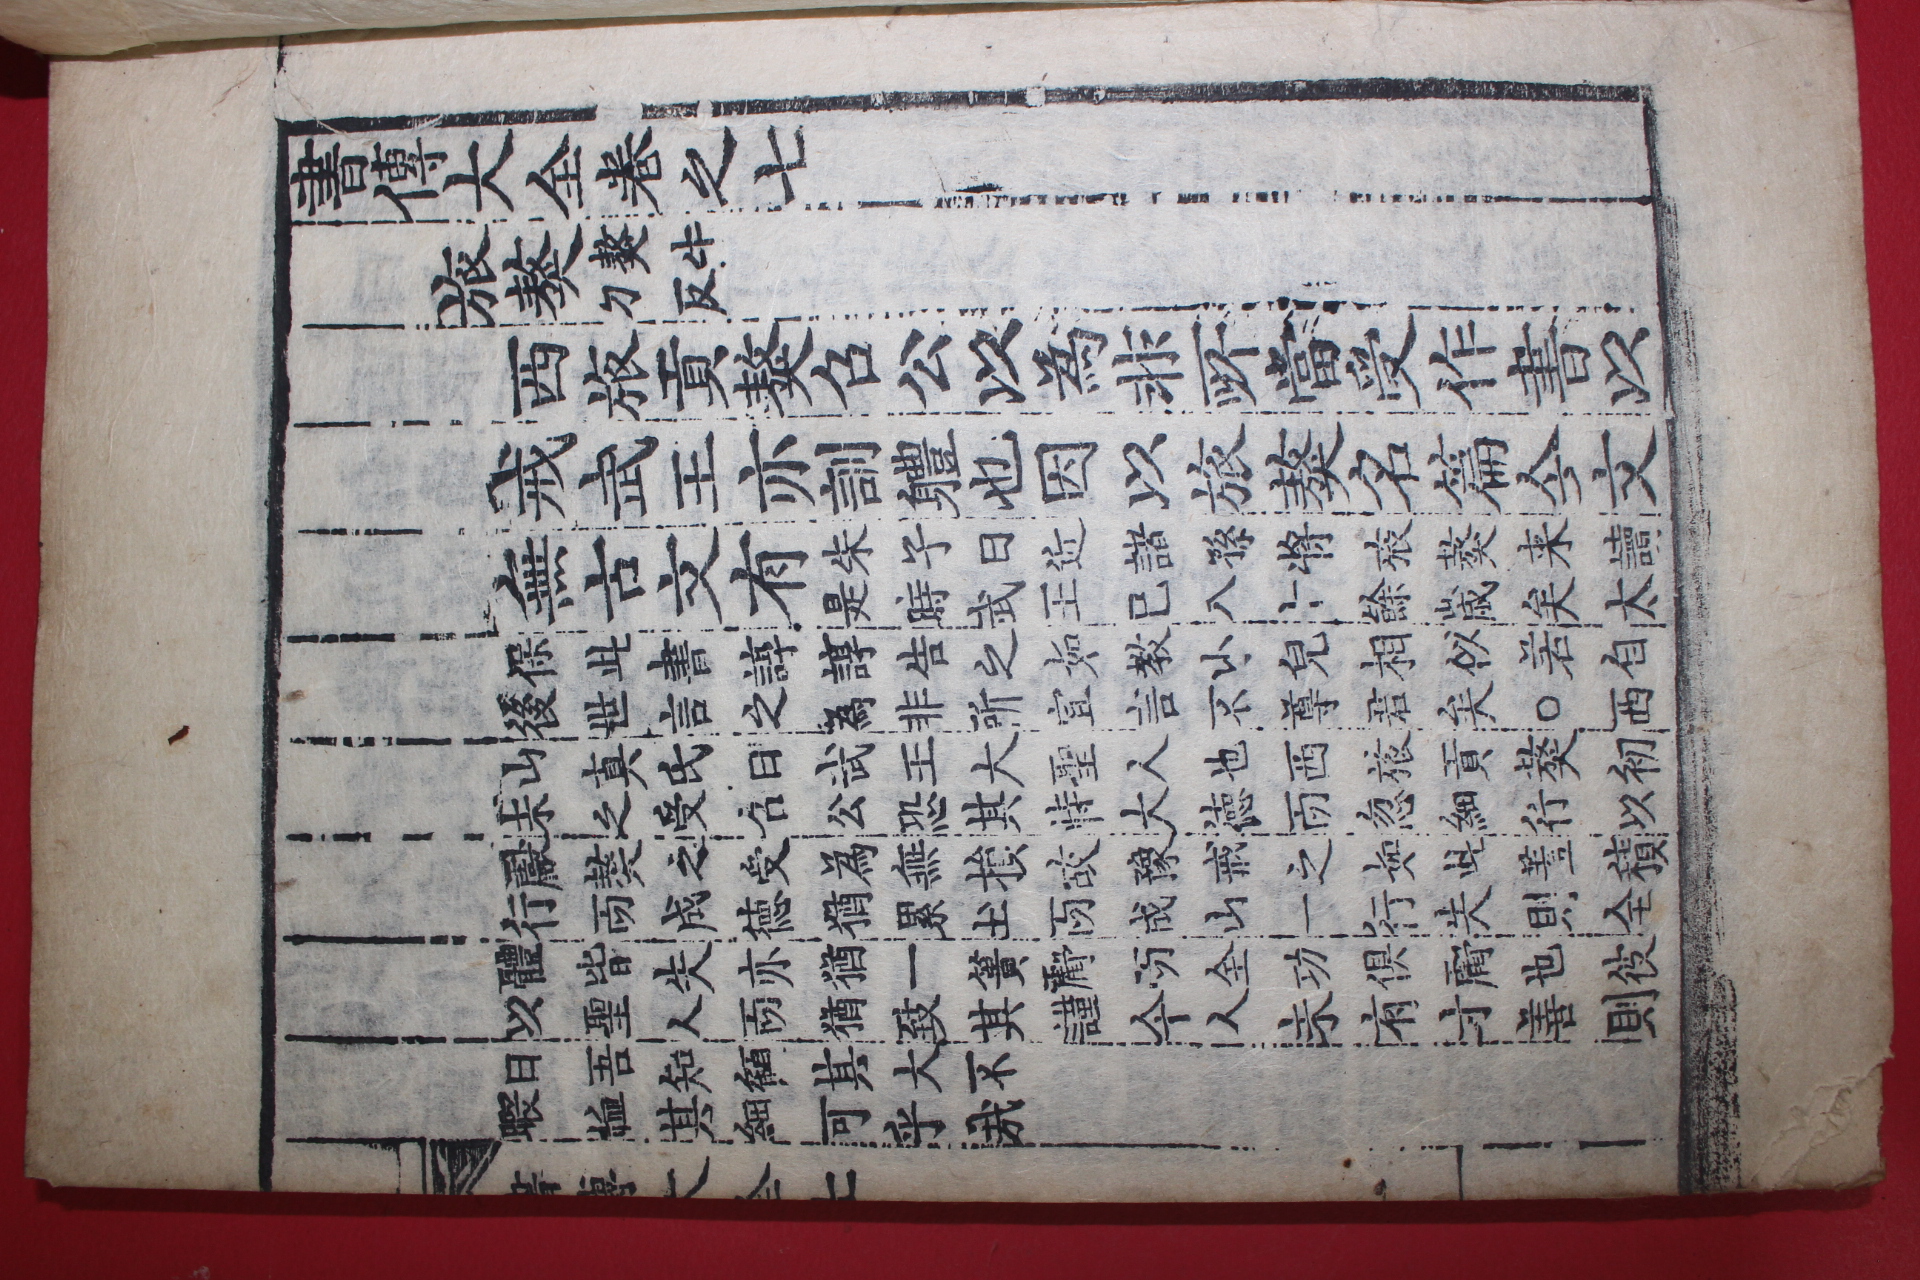 書傳大全卷之七
旅獒
獒牛
刀反
西旅貢獒召公以為非所當受作書以
戒武王亦訓軆也因以旅獒名篇今文
無古文有
朱子曰近諸孫將旅獒来讀
是時武王已八十餘歲矣太
保此書諄諄告之如教小兒相似若自
後世言之為非所宜言不尊君矣○西
山真氏曰武王大聖人也西旅貢獒初
未之受召公恐其恃大德而忽細行以
獻獒之受為無損故豫戒之如此蓋積
行而成德猶累土而成山一行失則全
體皆失亦猶一簣虧而全功俱虧也彼
以聖人而猶致其謹今人未有寸善則
曰吾知顧其大不
暇恤其細可乎哉
書傳大全七
一